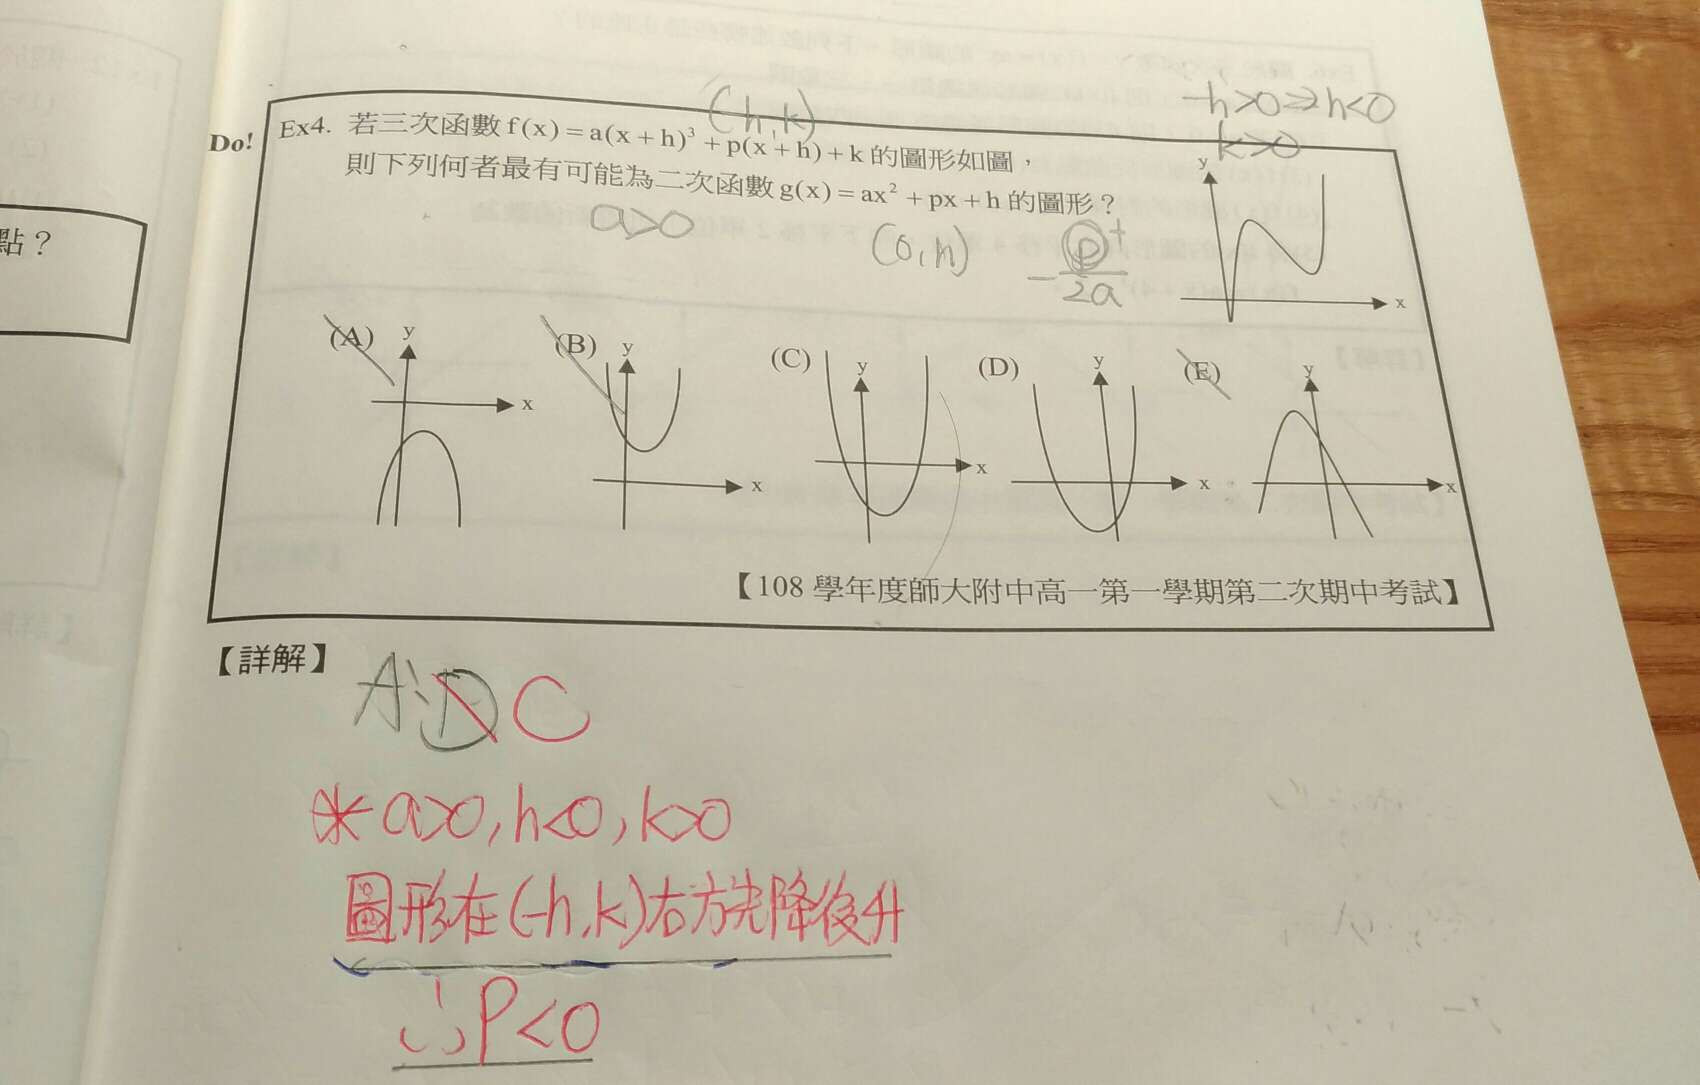 (h,k)
-h>0⇒h<0
k>0
Do!
Ex4. 若三次函數 f(x)=a(x+h)³+p(x+h)+k 的圖形如圖，
則下列何者最有可能為二次函數 g(x)=ax²+px+h 的圖形？
a>0
(0,h)
-p/2a
+
y
x
(A)
y
x
(B)
y
x
(C)
y
x
(D)
y
x
(E)
y
x
【108 學年度師大附中高一第一學期第二次期中考試】
點？
【詳解】
A:D C
* a>0, h<0, k>0
圖形在(-h,k)右方先降後升
∴P<0